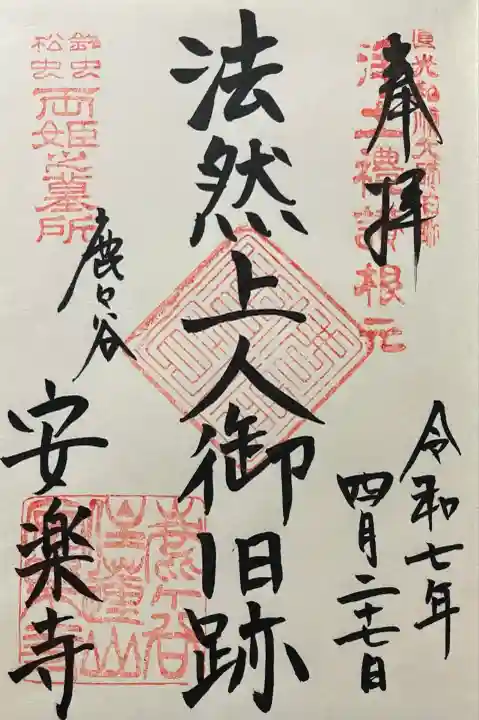 奉拝
浄土禮讃根元
令和七年
四月二十七日
法然上人御旧跡
鈴虫
松虫
両姫之墓所
鹿ヶ谷
安楽寺
鹿ケ谷
住蓮山
安楽寺